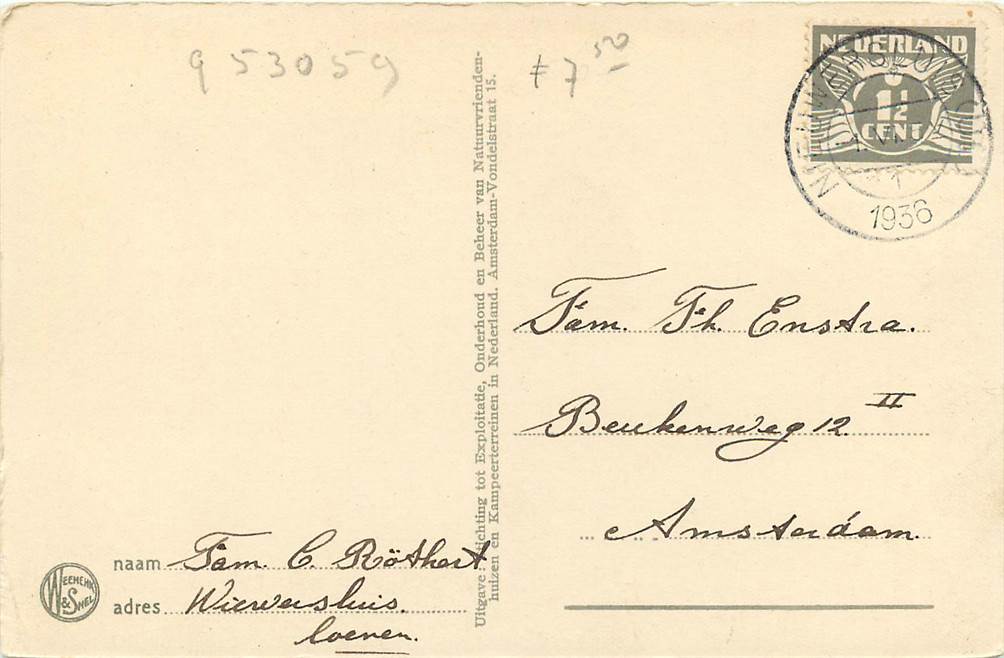 953059
ƒ 7 50
NEDERLAND
1½
CENT
1936
Fam. Th. Enstra.
Beukenweg 12 II
Amsterdam.
Uitgave: Stichting tot Exploitatie, Onderhoud en Beheer van Natuurvrienden-
huizen en Kampeerterreinen in Nederland. Amsterdam-Vondelstraat 15.
naam Fam. C. Röthert
adres Wierwershuis.
loenen.
WEENENK
& SNEL